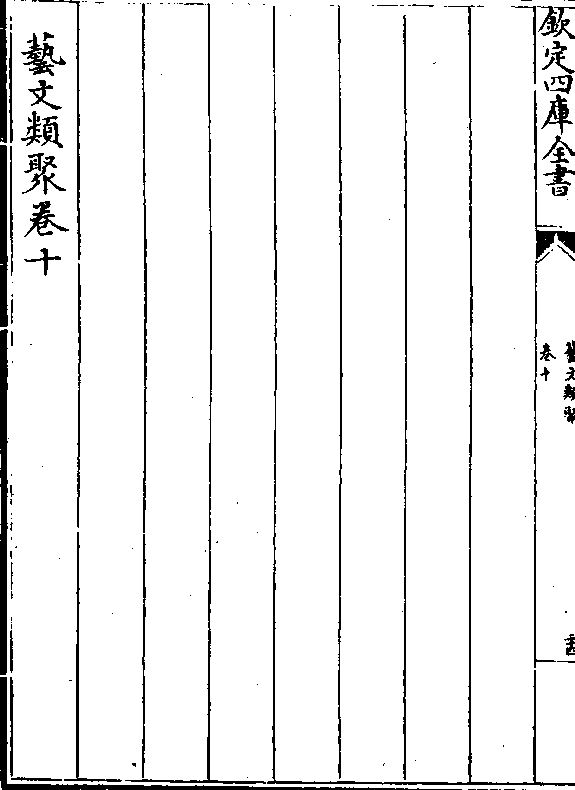 欽定四庫全書
藝文類聚
卷十
藝文類聚卷十